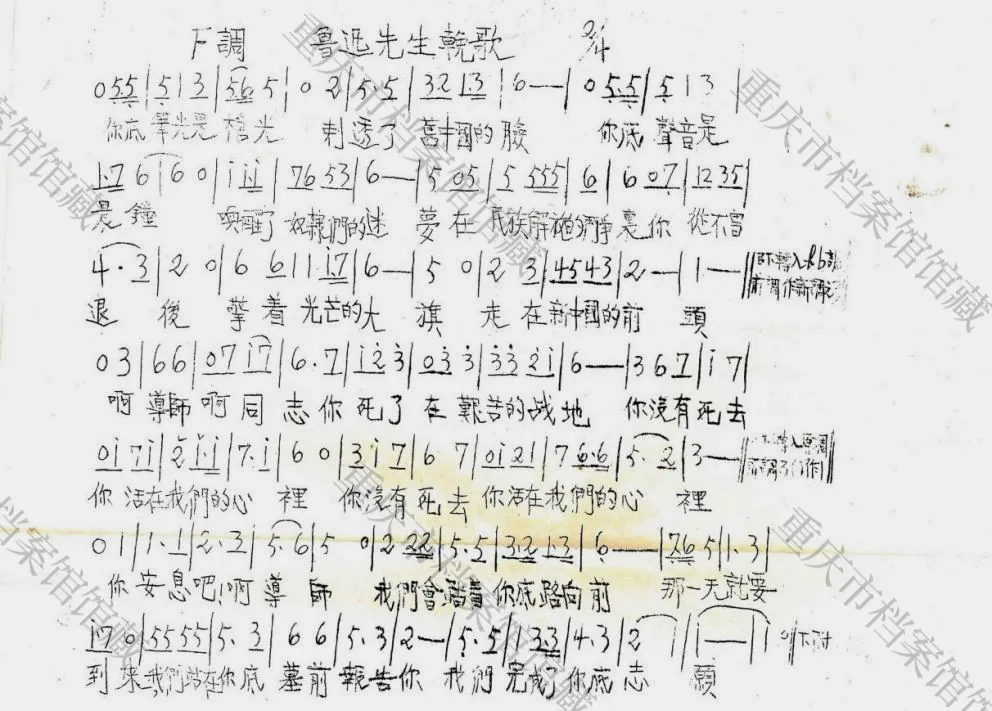 F調 魯迅先生輓歌 2/4
0 55|5 1 3|56 5|0 2|5·5|32 1·3|6—|0 5·5|5 1 3|
你底筆尖是槍尖 刺透了舊中國的臉 你底聲音是
1·7 6|6 0|i i i|76 53|6—|5 05|5 555|6|6 07|12 35|
晨鐘 喚醒了奴隸們的迷夢 在民族解放的鬥爭裏 你從不曾
4·3|2 0|6 6|11 17|6—|5 0|2 3|4543|2—|1—||
退後 擎着光芒的大旗 走在新中國的前頭
0 3|6 6|07 i7|6·7|i 2 3|03 3|33 2i|6—|3 6 7|i 7|
啊導師啊同志你死了在艱苦的战地 你沒有死去
0i 7i|2 i·i|7·i|6 0|3 i 7|6 7|0i 21|7 6·6|5·2|3—||
你活在我們的心裡 你沒有死去你活在我們的心裡
0 1|1·1|2·3|5·6|5 0|2 22|5·5|3·2 1·3|6—|76 5|1·3|
你安息吧!啊導師 我們會踏着你底路向前 那一天就要
i7 0|55 55|5·3|6 6|5·3|2—|5·5|1 33|4·3|2|1—|
到來我們站在你底墓前報告你 我們完成了你底志願
重庆市档案馆馆藏
重庆市档案馆馆藏
重庆市档案馆馆藏
重庆市档案馆馆藏